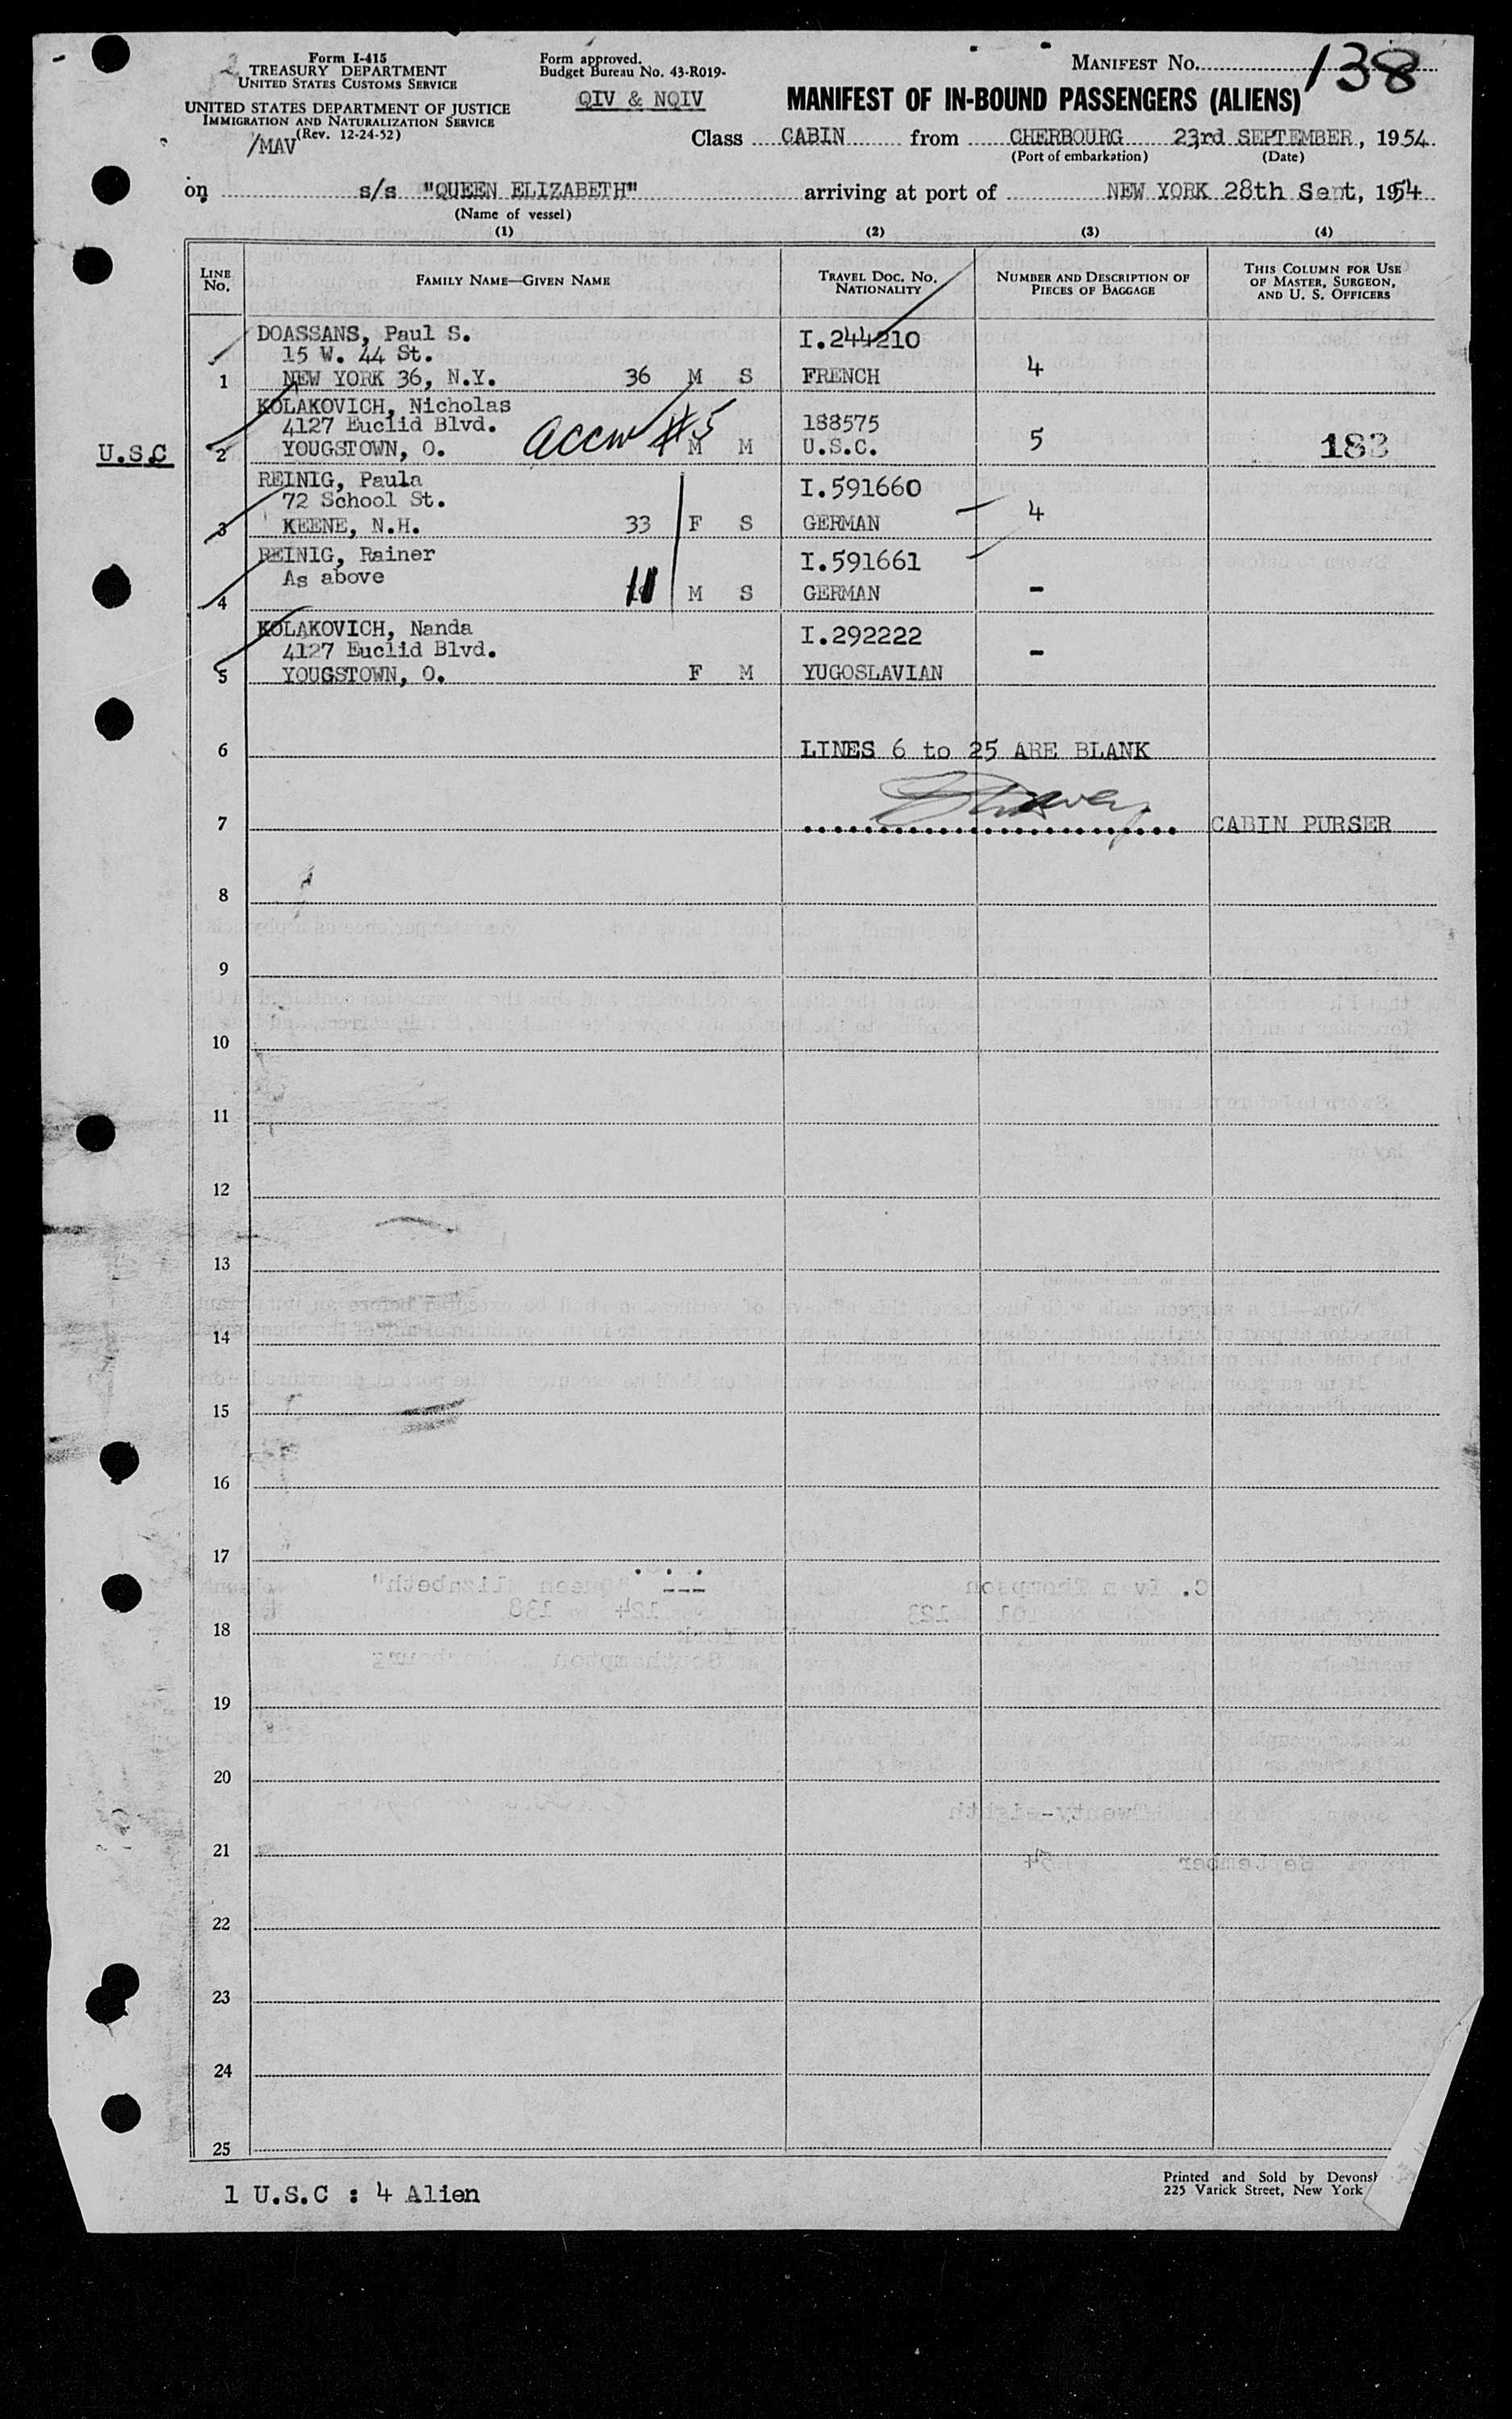 Form I-415
TREASURY DEPARTMENT
UNITED STATES CUSTOMS SERVICE
UNITED STATES DEPARTMENT OF JUSTICE
IMMIGRATION AND NATURALIZATION SERVICE
(Rev. 12-24-52)
/MAV
Form approved.
Budget Bureau No. 43-R019-
QIV & NQIV
MANIFEST NO. 138
MANIFEST OF IN-BOUND PASSENGERS (ALIENS)
Class CABIN from CHERBOURG 23rd SEPTEMBER, 1954
(Port of embarkation) (Date)
on s/s "QUEEN ELIZABETH" arriving at port of NEW YORK 28th Sept, 1954
(Name of vessel)
(1) (2) (3) (4)
LINE NO. FAMILY NAME—GIVEN NAME TRAVEL DOC. NO. NATIONALITY NUMBER AND DESCRIPTION OF PIECES OF BAGGAGE THIS COLUMN FOR USE OF MASTER, SURGEON, AND U. S. OFFICERS
DOASSANS, Paul S. I.244210
15 W. 44 St.
1 NEW YORK 36, N.Y. 36 M S FRENCH 4
KOLAKOVICH, Nicholas
4127 Euclid Blvd. accw #5 188575
U.S.C 2 YOUGSTOWN, O. M M U.S.C. 5 183
REINIG, Paula I.591660
72 School St.
3 KEENE, N.H. 33 F S GERMAN 4
REINIG, Rainer I.591661
As above
4 11 M S GERMAN -
KOLAKOVICH, Nanda I.292222
4127 Euclid Blvd. -
5 YOUGSTOWN, O. F M YUGOSLAVIAN
6 LINES 6 to 25 ARE BLANK
7 CABIN PURSER
8
9
10
11
12
13
14
15
16
17
18
19
20
21
22
23
24
25
1 U.S.C : 4 Alien
Printed and Sold by
225 Varick Street, New York